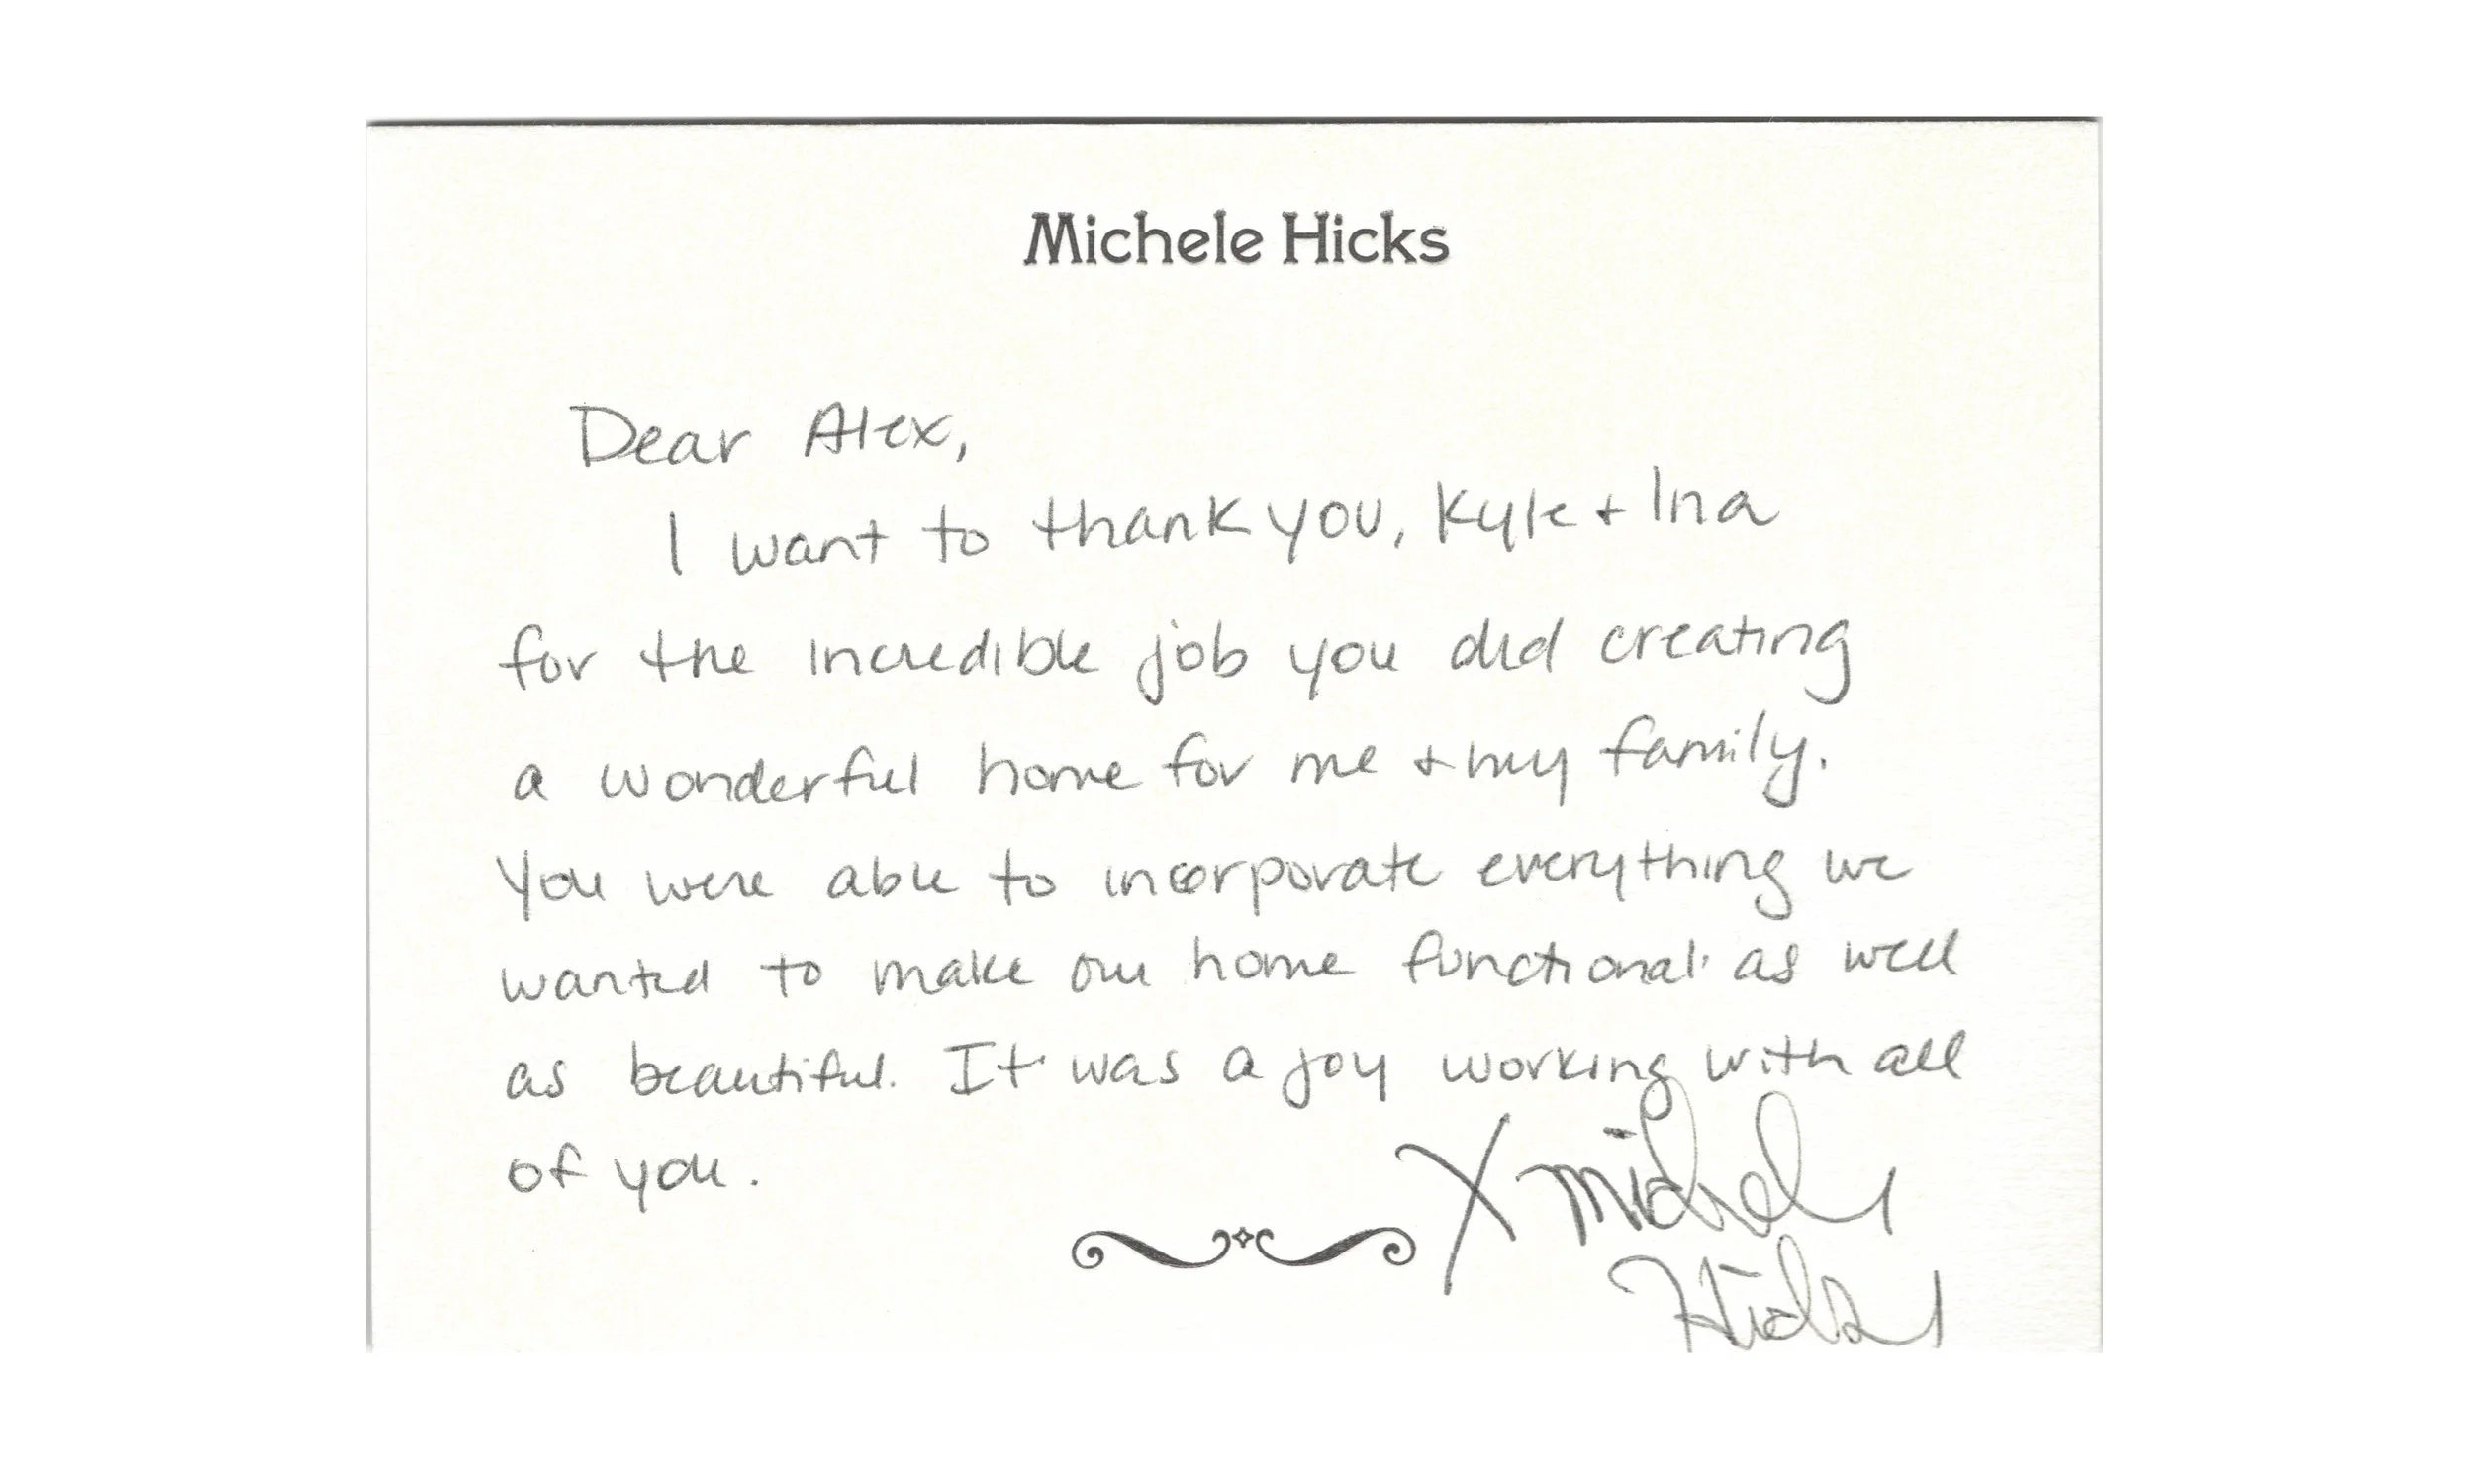 Michele Hicks
Dear Alex,
I want to thank you, Kyle + Ina
for the incredible job you did creating
a wonderful home for me + my family.
You were able to incorporate everything we
wanted to make our home functional as well
as beautiful. It was a joy working with all
of you.
X Michele
Hicks